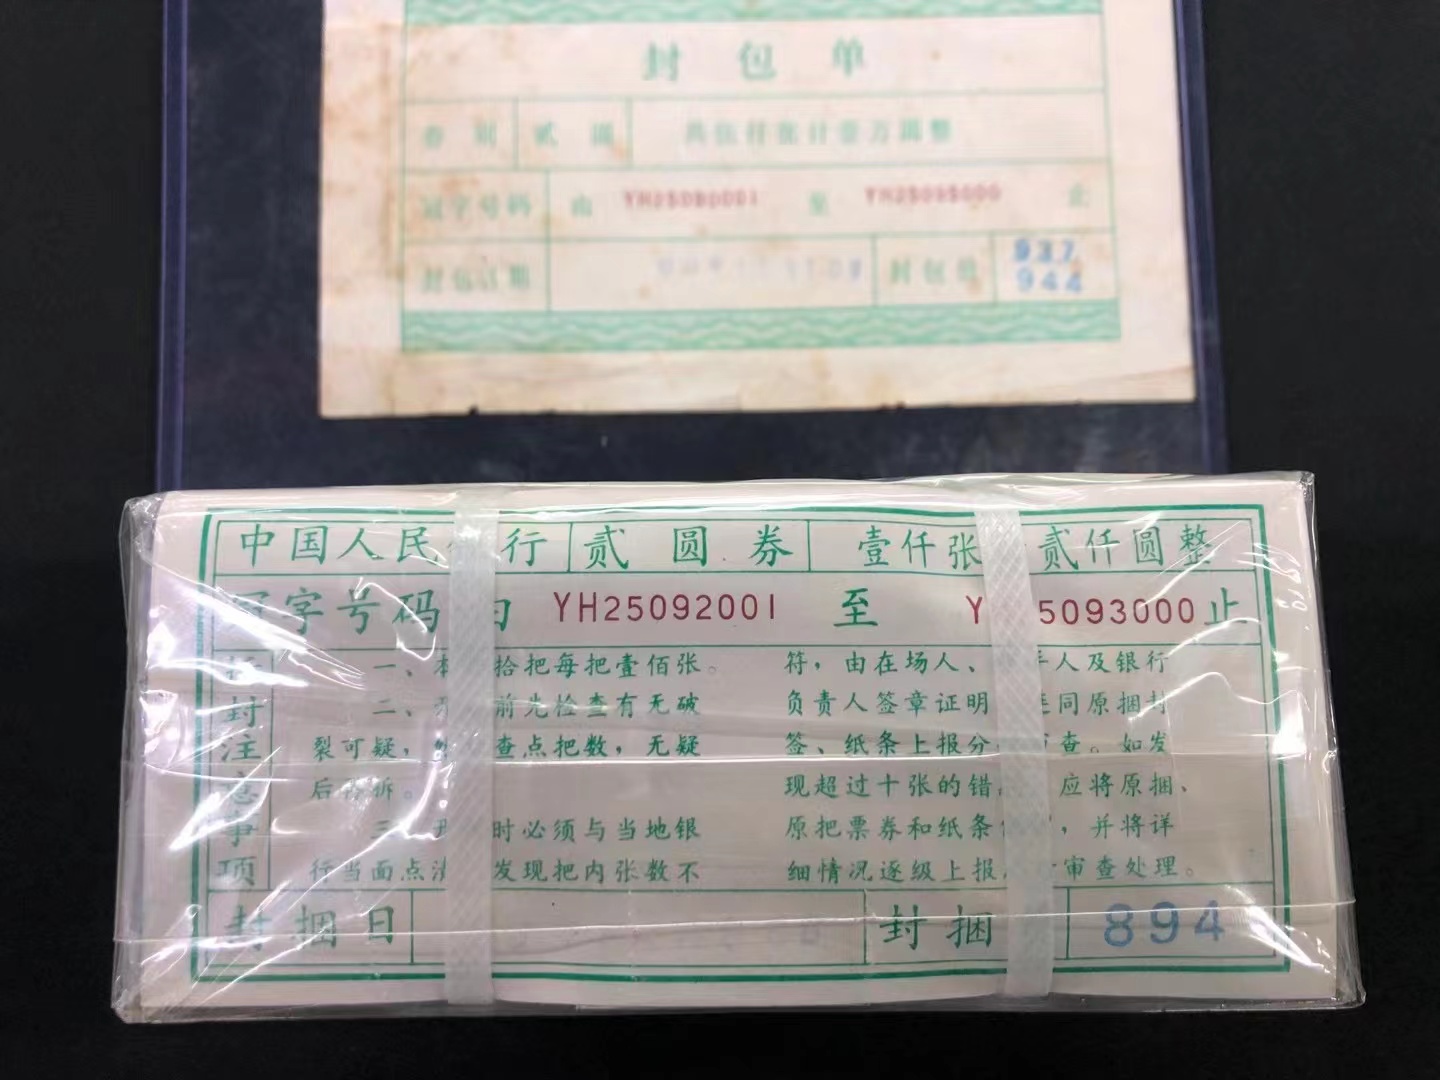 封包单
券别 贰圆 共伍仟张计壹万圆整
冠字号码 由 YH25090001 至 YH25095000 止
封包日期 封包员 937
944
中国人民 行 贰圆券 壹仟张 贰仟圆整
字号码 YH25092001 至 Y 5093000 止
封注意事项
一、本 拾把每把壹佰张。
二、 前先检查有无破
裂可疑, 查点把数,无疑
后 拆。
三 时必须与当地银
行当面点 发现把内张数不
符,由在场人、 人及银行
负责人签章证明 同原捆封
签、纸条上报分 审查。如发
现超过十张的错 应将原捆、
原把票券和纸条 ,并将详
细情况逐级上报 审查处理。
封捆日 封捆 894